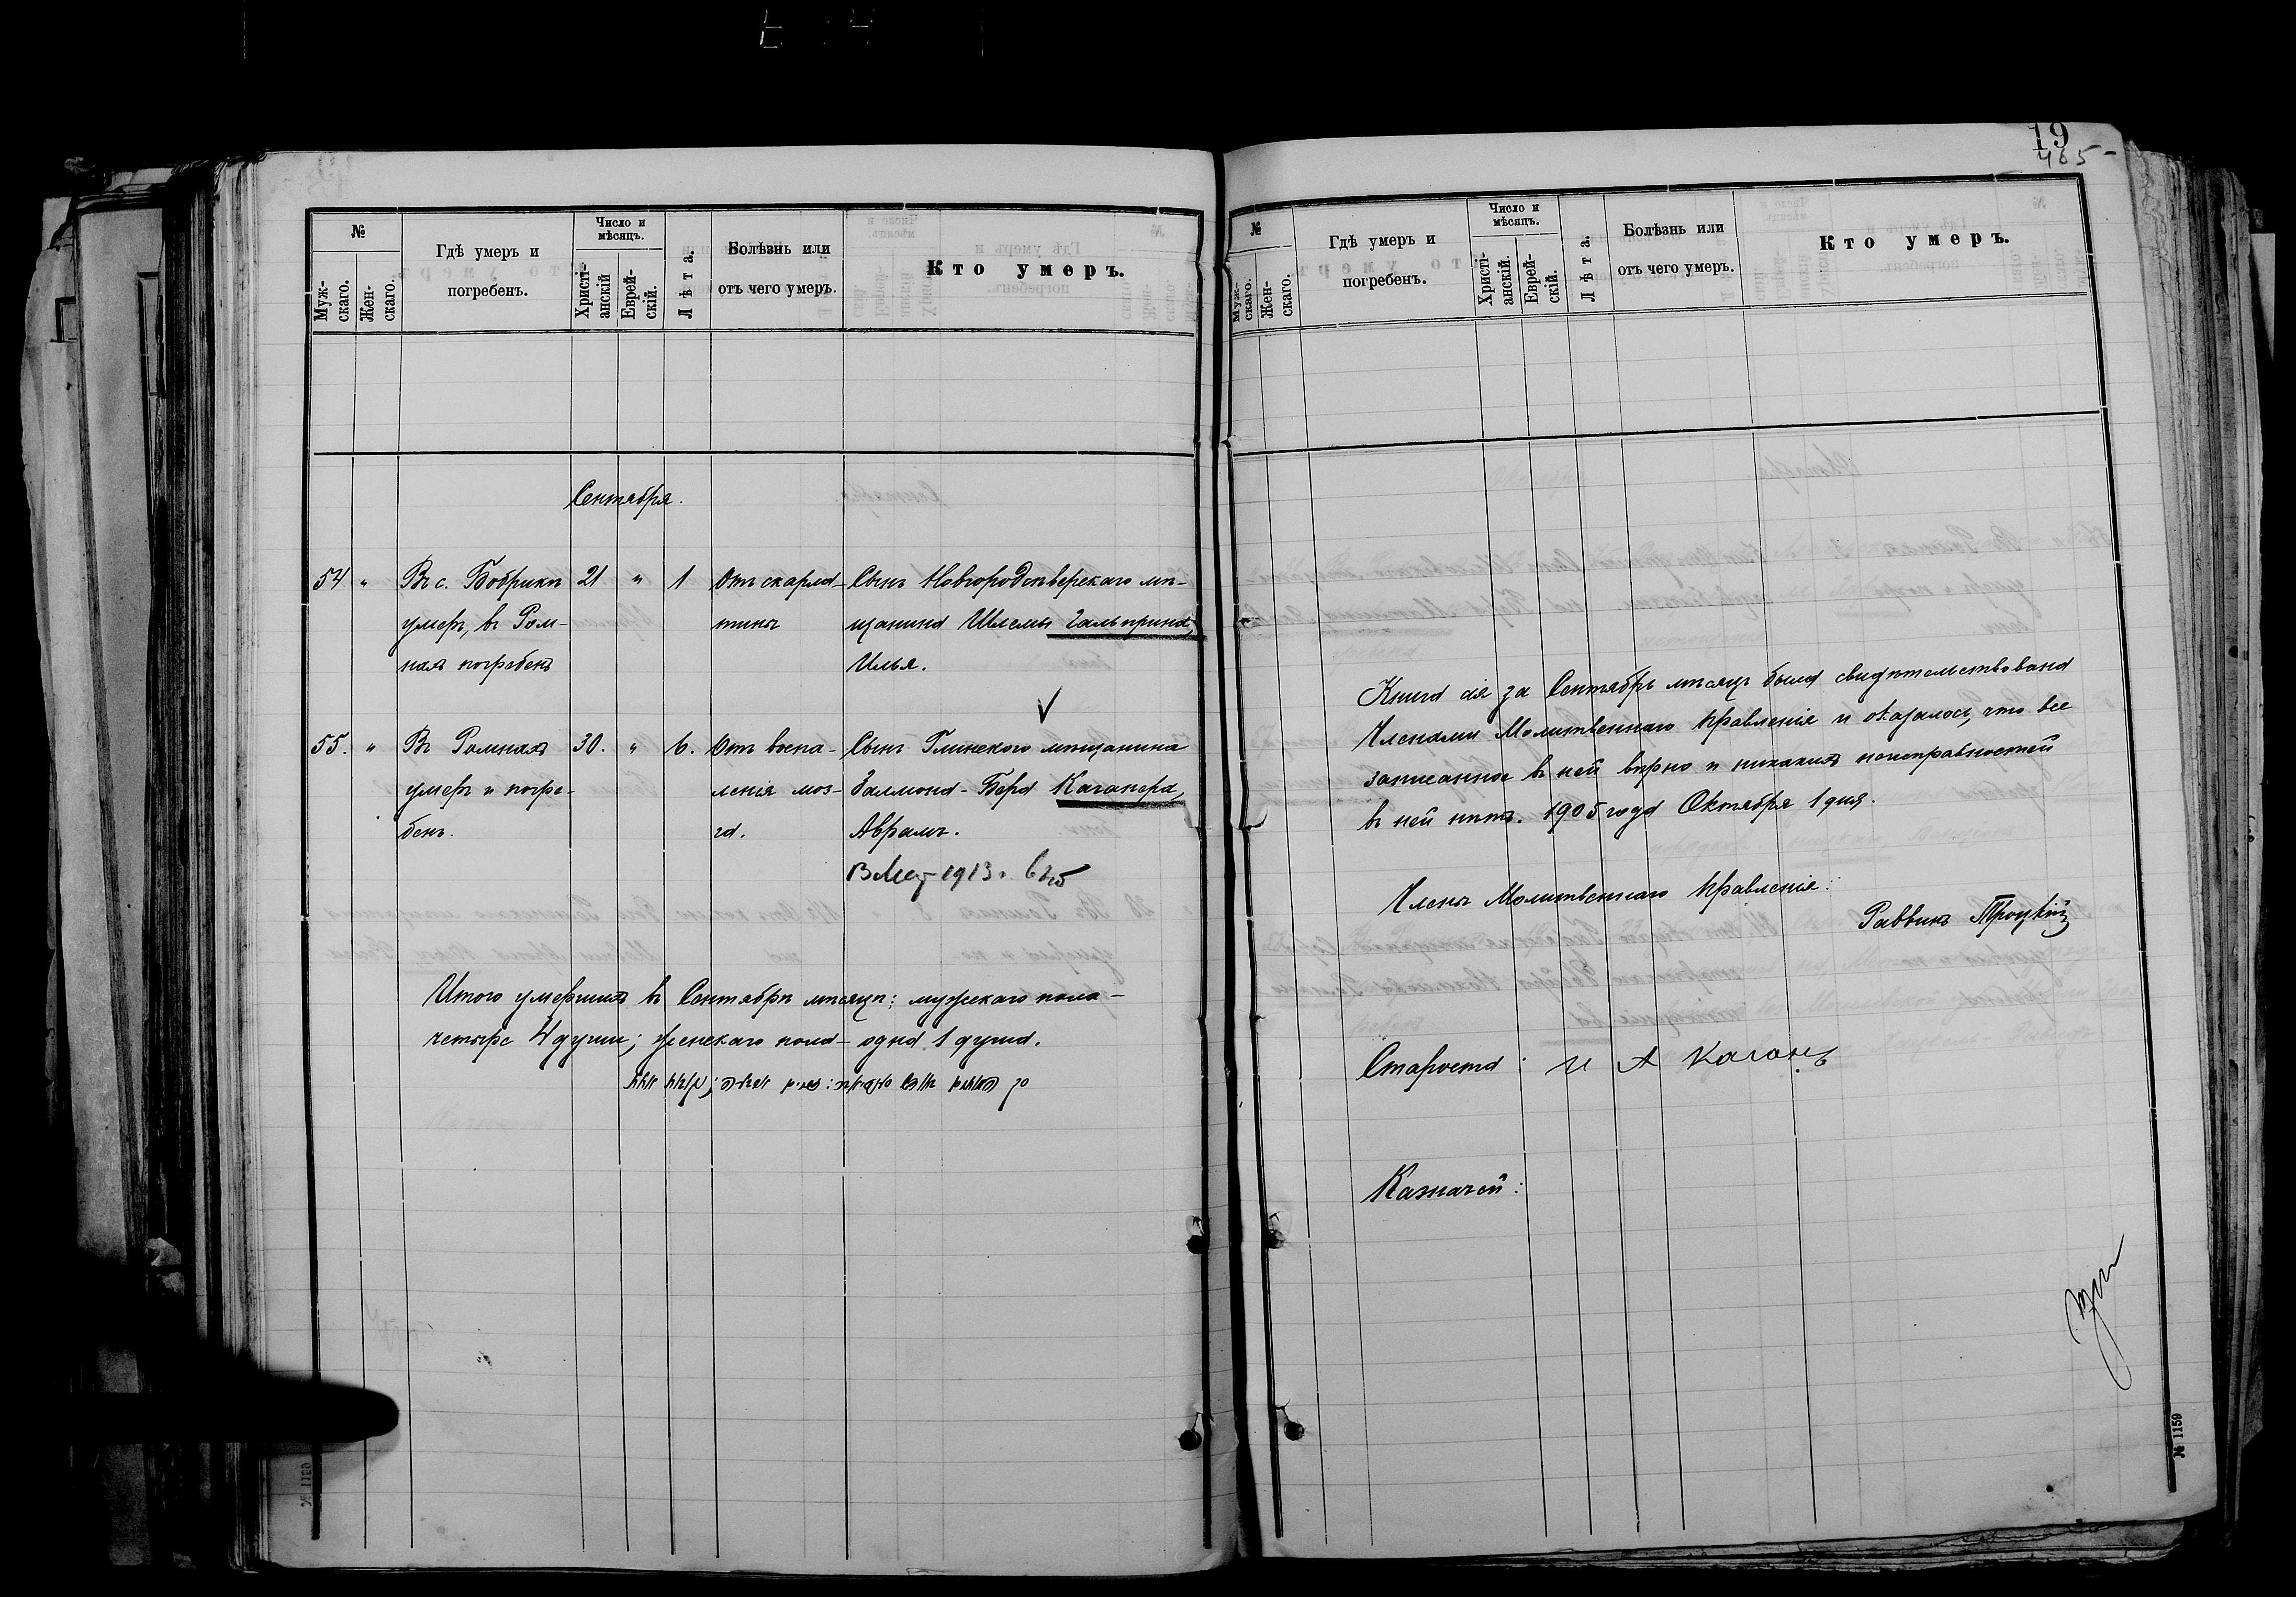 №
Муж-
скаго.
Жен-
скаго.
Гдѣ умеръ и
погребенъ.
Число и
мѣсяцъ.
Христі-
анскій
Еврей-
скій.
Лѣта.
Болѣзнь или
отъ чего умеръ.
Кто умеръ.
Сентября.
54 " Въ с. Бобрикѣ 21 " 1 Отъ скарла- Сынъ Новгородсѣверскаго мѣ-
умеръ, въ Ром- тины щанина Шлемы Гальприна,
нахъ погребенъ Илья.
55. " Въ Ромнахъ 30. " 6. Отъ воспа- Сынъ Глинского мѣщанина
умеръ и погре- ленія моз- Залмона-Бера Каганера,
бенъ. га. Аврамъ.
1913г.
Итого умершихъ въ Сентябрѣ мѣсяцѣ: мужескаго пола-
четыре 4 души; женскаго пола- одна 1 душа.
19
465-
№
Муж-
скаго.
Жен-
скаго.
Гдѣ умеръ и
погребенъ.
Число и
мѣсяцъ.
Христі-
анскій.
Еврей-
скій.
Лѣта.
Болѣзнь или
отъ чего умеръ.
Кто умеръ.
Книга сія за Сентябрь мѣсяцъ была свидѣтельствована
Членами Молитвеннаго Правленія и оказалось, что все
записанное въ ней вѣрно и никакихъ неисправностей
въ ней нѣтъ. 1905 года Октября 1 дня.
Члены Молитвеннаго Правленія:
Раввинъ Троцкій
Староста: И А Каганъ
Казначей:
№ 1159